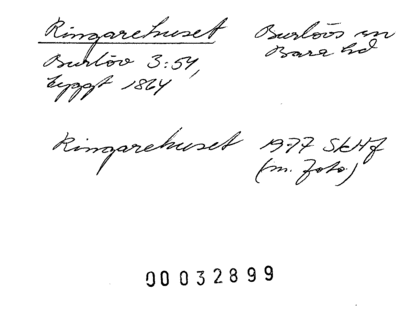 Ringarehuset Burlövs sn
Burlöv 3:54, Bara hd
byggt 1864
Ringarehuset 1977 SkHf
(m. foto)
00032899